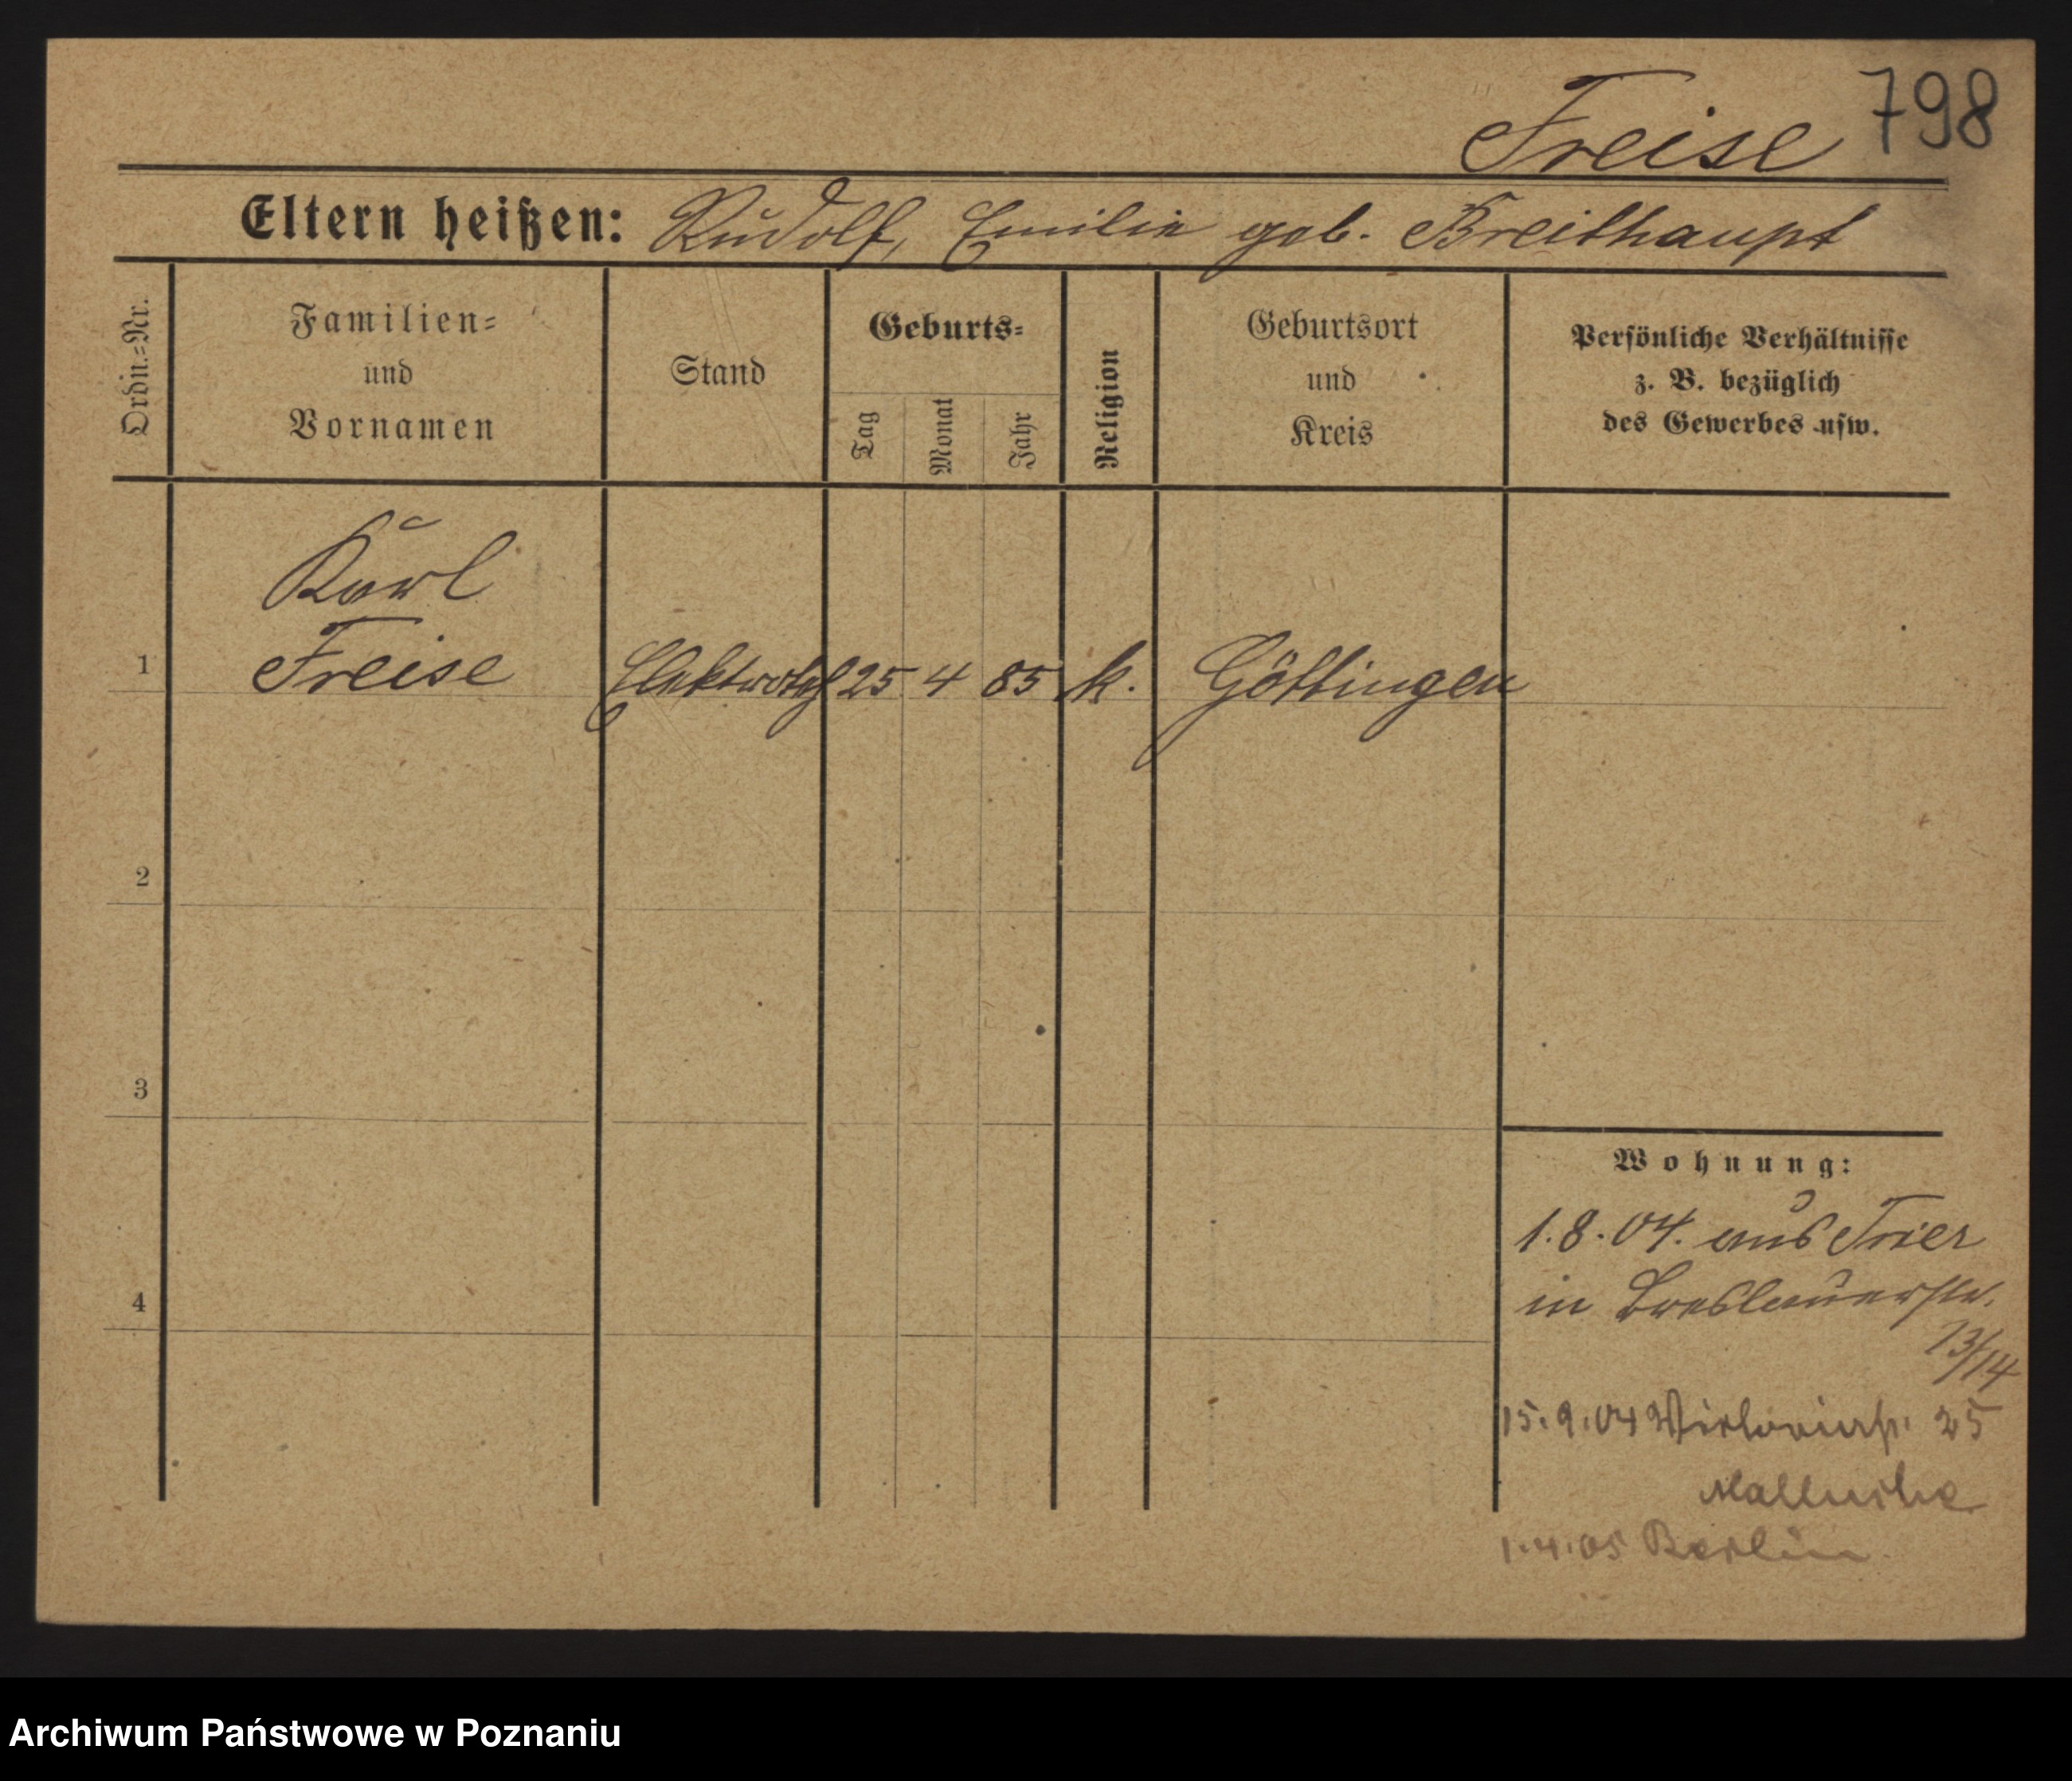 798
Freise
Eltern heißen: Rudolf, Emilie geb. Breithaupt
Ordn.-Nr.
Familien-
und
Vornamen
Stand
Geburts-
Tag
Monat
Jahr
Religion
Geburtsort
und
Kreis
Persönliche Verhältnisse
z. B. bezüglich
des Gewerbes usw.
Karl
1 Freise Elektrotech 25 4 85 k. Göttingen
2
3
4
Wohnung:
1.8.04. aus Trier
in Breslauerstr.
13/14
15.9.04 Viktoriastr. 25
1.4.05 Berlin
Archiwum Państwowe w Poznaniu